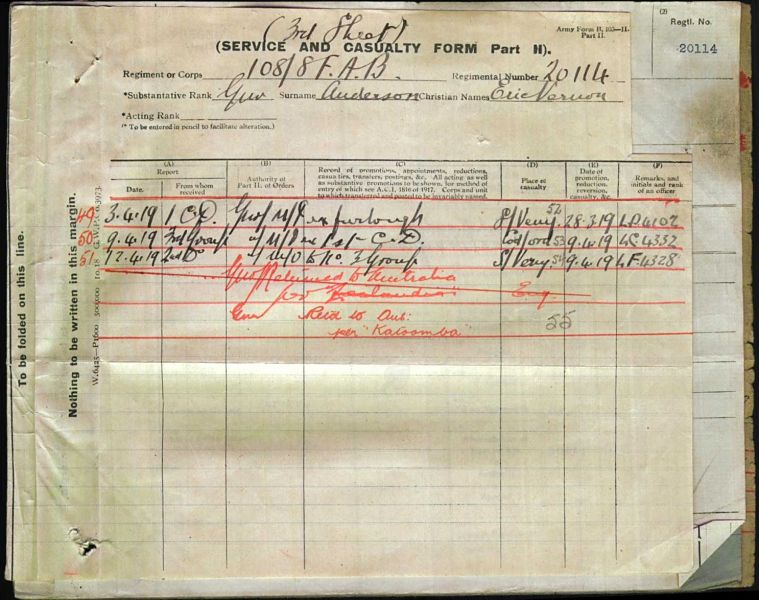 (2)
Regtl. No.
20114
Army Form B. 103—II.
Part II.
(3rd Sheet)
(SERVICE AND CASUALTY FORM Part II).
Regiment or Corps 108/8 F.A.B. Regimental Number 20114
*Substantive Rank Gnr Surname Anderson Christian Names Eric Vernon
*Acting Rank
(* To be entered in pencil to facilitate alteration.)
(A) (B) (C) (D) (E) (F)
Report
Date. From whom received
Authority of Part II. of Orders
Record of promotions, appointments, reductions, casualties, transfers, postings, &c. All acting as well as substantive promotions to be shown, for method of entry of which see A.C.I. 1816 of 1917. Corps and unit present with and posted to be invariably named.
Place of casualty
Date of promotion, reduction, reversion, casualty, &c.
Remarks, and initials and rank of an officer
49 3.4.19 1 C.D. Gnr M/I ex furlough S/Veny 52 28.3.19 4102
50 9.4.19 3rd Group M/O ex 1st C.D. Codford 53 9.4.19 4332
51 12.4.19 2nd Do M/O to No. 3 Group S/Veny 54 9.4.19 4328
Gnr Returned to Australia
per "Zealandic" Eng.
Gnr Retd to Aus: 55
per "Katoomba"
To be folded on this line.
Nothing to be written in this margin.